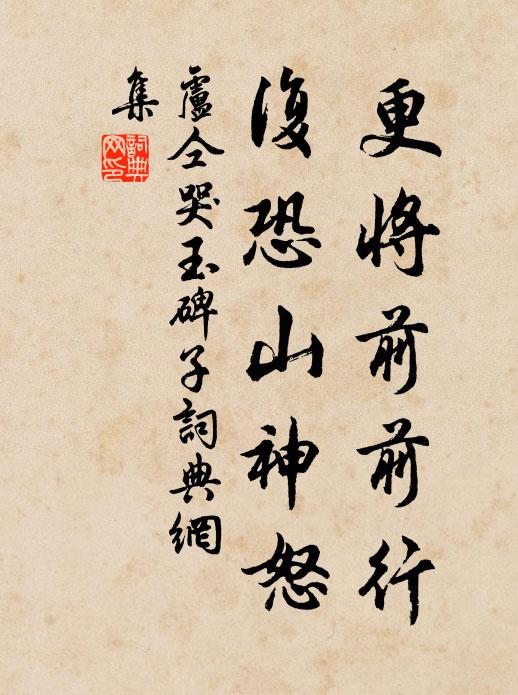 更將前前行
復恐山神怒
盧仝哭玉碑子詞典網
集
詞典網印